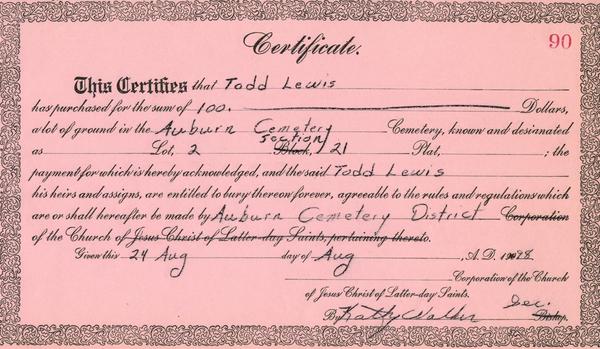 90
Certificate.
This Certifies that Todd Lewis
has purchased for the sum of 100. Dollars,
a lot of ground in the Auburn Cemetery Cemetery, known and designated
section
as Lot, 2 Block, 21 Plat, ; the
payment for which is hereby acknowledged, and the said Todd Lewis
his heirs and assigns, are entitled to bury thereon forever, agreeable to the rules and regulations which
are or shall hereafter be made by Auburn Cemetery District Corporation
of the Church of Jesus Christ of Latter-day Saints, pertaining thereto.
Given this 24 Aug day of Aug , A. D. 1998
Corporation of the Church
of Jesus Christ of Latter-day Saints.
Sec.
By Kathy Walker Bishop.